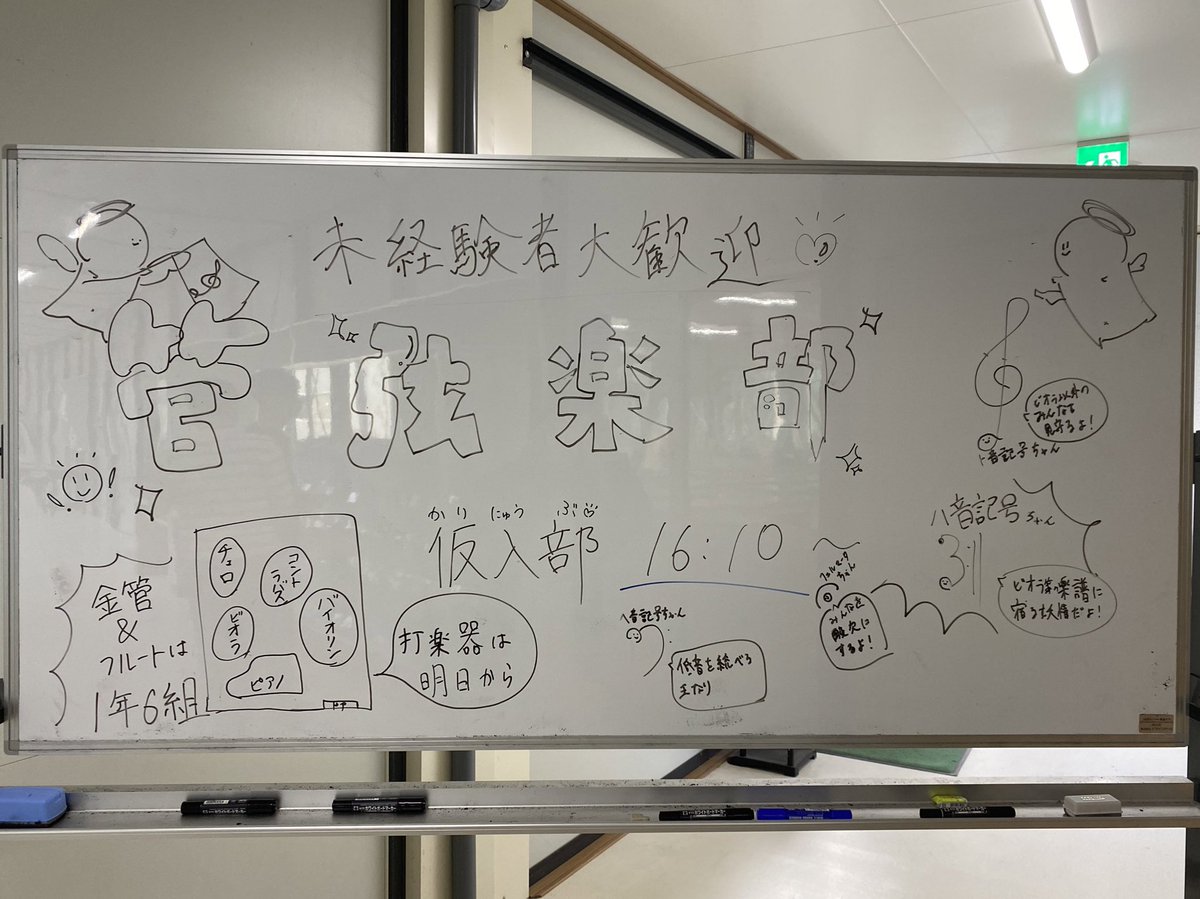 未経験者大歓迎
管弦楽部
ビオラ以外の
みんなを
見守るよ!
ト音記号ちゃん
かりにゅうぶ
仮入部
16:10
金管
&
フルートは
1年6組
チェロ
コントラバス
ビオラ
バイオリン
ピアノ
ドア
打楽器は
明日から
ヘ音記号ちゃん
低音を統べる
王なり
フェルマータ
ちゃん
みんなを
酸欠に
するよ!
ハ音記号ちゃん
ビオラの楽譜に
宿る妖精だよ!